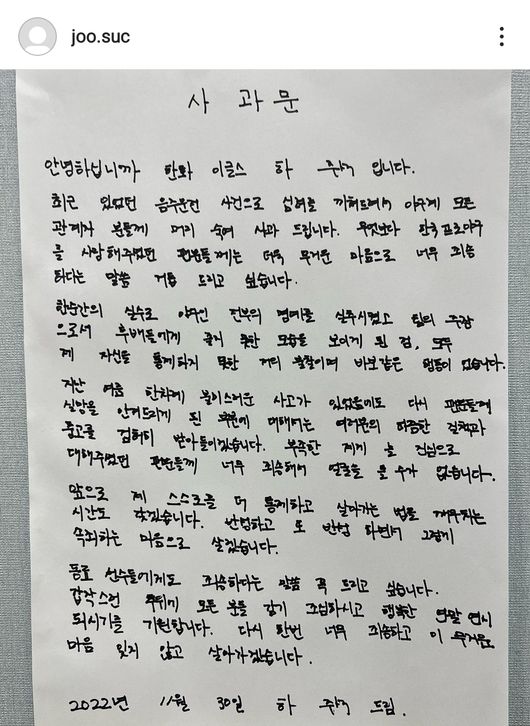 joo.suc
사과문
안녕하십니까 한화 이글스 하 주석 입니다.
최근 있었던 음주운전 사건으로 심려를 끼쳐드려서 야구계 모든
관계자 분들께 머리 숙여 사과 드립니다. 무엇보다 한국프로야구
를 사랑해주셨던 팬분들께는 더욱 무거운 마음으로 너무 죄송
하다는 말씀 거듭 드리고 싶습니다.
한순간의 실수로 야구인 전부의 명예를 실추시켰고 팀의 주장
으로서 후배들에게 좋지 못한 모습을 보이게 된 점, 모두
제 자신을 통제하지 못한 저의 불찰이며 바보같은 행동이 었습니다.
지난 여름 한차례 불미스러운 사고가 있었음에도 다시 팬분들께
실망을 안겨드리게 된 부분에 대해서는 여러분의 따끔한 질책과
충고를 겸허히 받아들이겠습니다. 부족한 제게 늘 진심으로
대해주셨던 팬분들께 너무 죄송해서 얼굴을 들 수가 없습니다.
앞으로 제 스스로를 더 통제하고 살아가는 법을 깨우치는
시간도 갖겠습니다. 반성하고 또 반성 하면서 그렇게
속죄하는 마음으로 살겠습니다.
동료 선수들에게도 죄송하다는 말씀 꼭 드리고 싶습니다.
갑작스런 추위에 모든 분들 감기 조심하시고 행복한 연말 연시
되시기를 기원합니다. 다시 한번 너무 죄송하고 이 무거운
마음 잊지 않고 살아가겠습니다.
2022년 11월 30일 하 주석 드림.